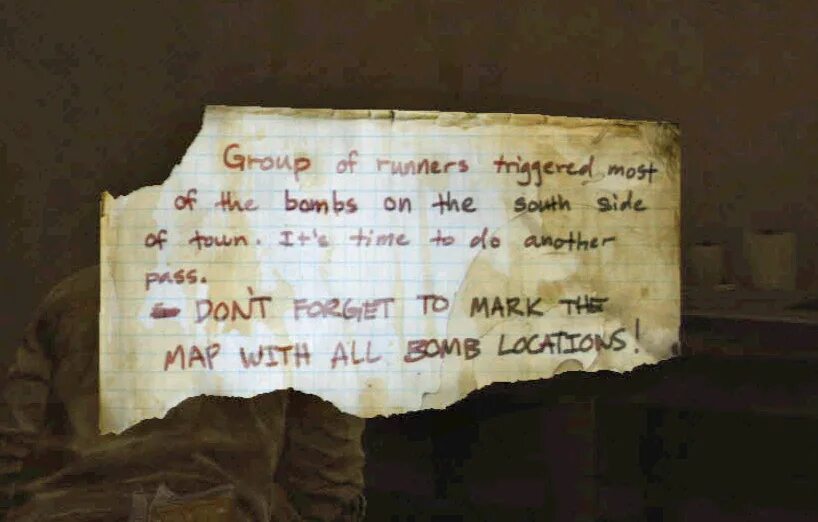 Group of runners triggered most
of the bombs on the south side
of town. It's time to do another
pass.
- DON'T FORGET TO MARK THE
MAP WITH ALL BOMB LOCATIONS!